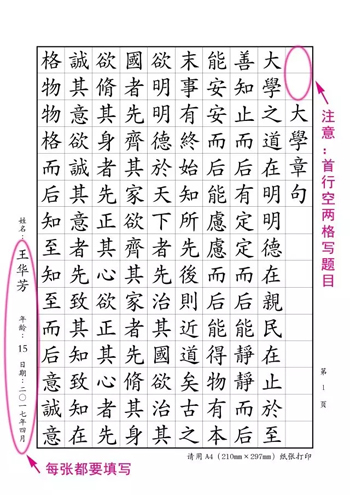 大學章句
大學之道在明明德在親民在止於至
善知止而后有定定而后能靜靜而后
能安安而后能慮慮而后能得物有本
末事有終始知所先後則近道矣古之
欲明明德於天下者先治其國欲治其
國者先齊其家欲齊其家者先脩其身
欲脩其身者先正其心欲正其心者先
誠其意欲誠其意者先致其知致知在
格物物格而后知至知至而后意誠意
注意：首行空两格写题目
第 1 页
姓名：王华芳 年龄：15 日期：二〇一七年四月
请用A4（210mm×297mm）纸张打印
每张都要填写